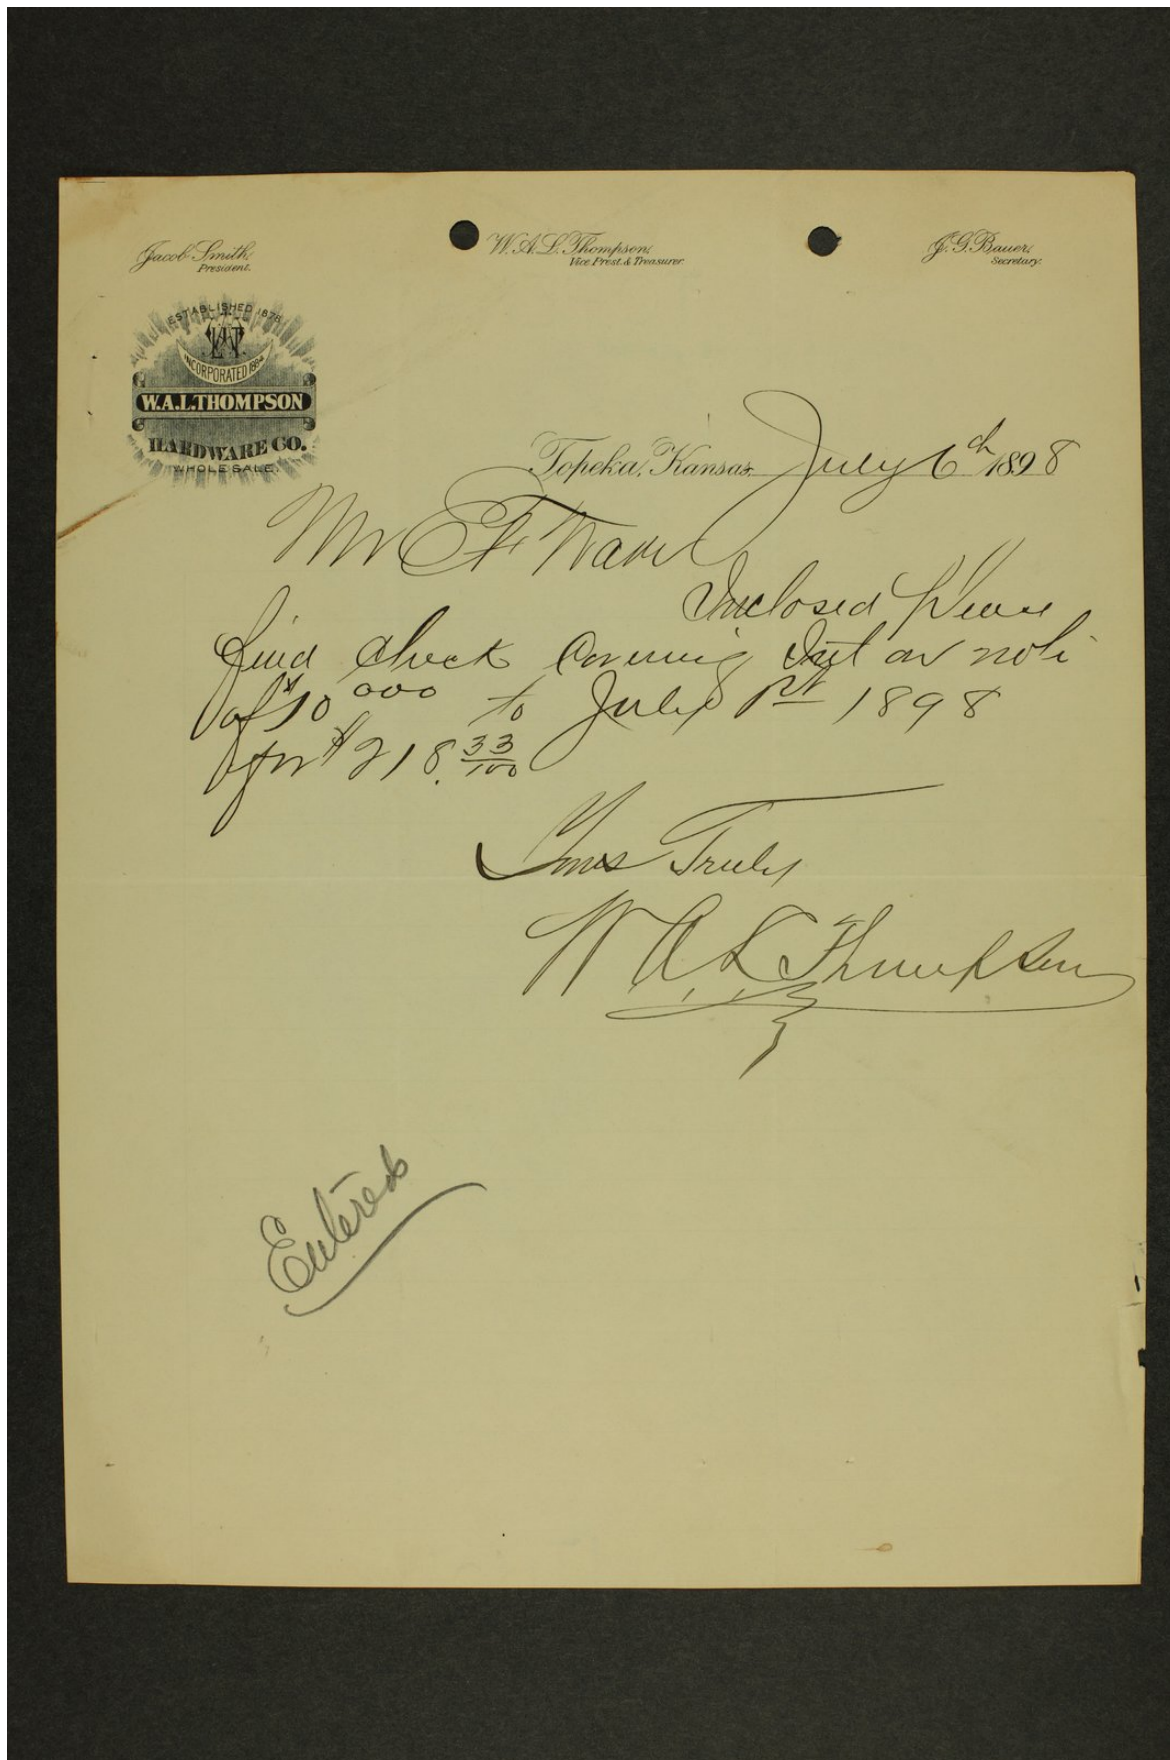 Jacob Smith,
President.
W.A.L. Thompson,
Vice Prest. & Treasurer
J.G. Bauer,
Secretary.
ESTABLISHED 1878
WAT
INCORPORATED 1884
W.A.L. THOMPSON
HARDWARE CO.
WHOLESALE.
Topeka, Kansas. July 6th 1898
Mr E F Ware
Inclosed Please
find check covering Int on note
of $10000 to July 1st 1898
for $218.33/100
Yours Truly
W A L Thompson
Entered